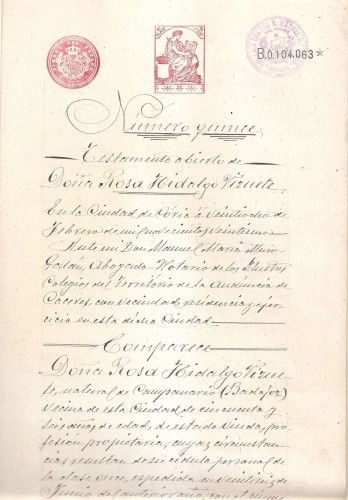 B.0.104.063*
Número quince
Testamento abierto de
Doña Rosa Hidalgo Vizuete
En la Ciudad de Coria á veintiocho de
Febrero de mil novecientos veintiuno
Ante mí Don Manuel María
Galán, Abogado Notario de los Ilustres
Colegios del Territorio de la Audiencia de
Cáceres, con vecindad residencia y ejer-
cicio en esta dicha Ciudad
Comparece
Doña Rosa Hidalgo Vizue-
te, natural de Campanario (Badajoz)
vecina de esta Ciudad de cincuenta y
seis años de edad, de estado viuda, pro-
fesión propietaria, cuyas circunstan-
cias resultan de su cédula personal de
la clase once, expedida en veintiseis de
Junio del anterior año, con el núme